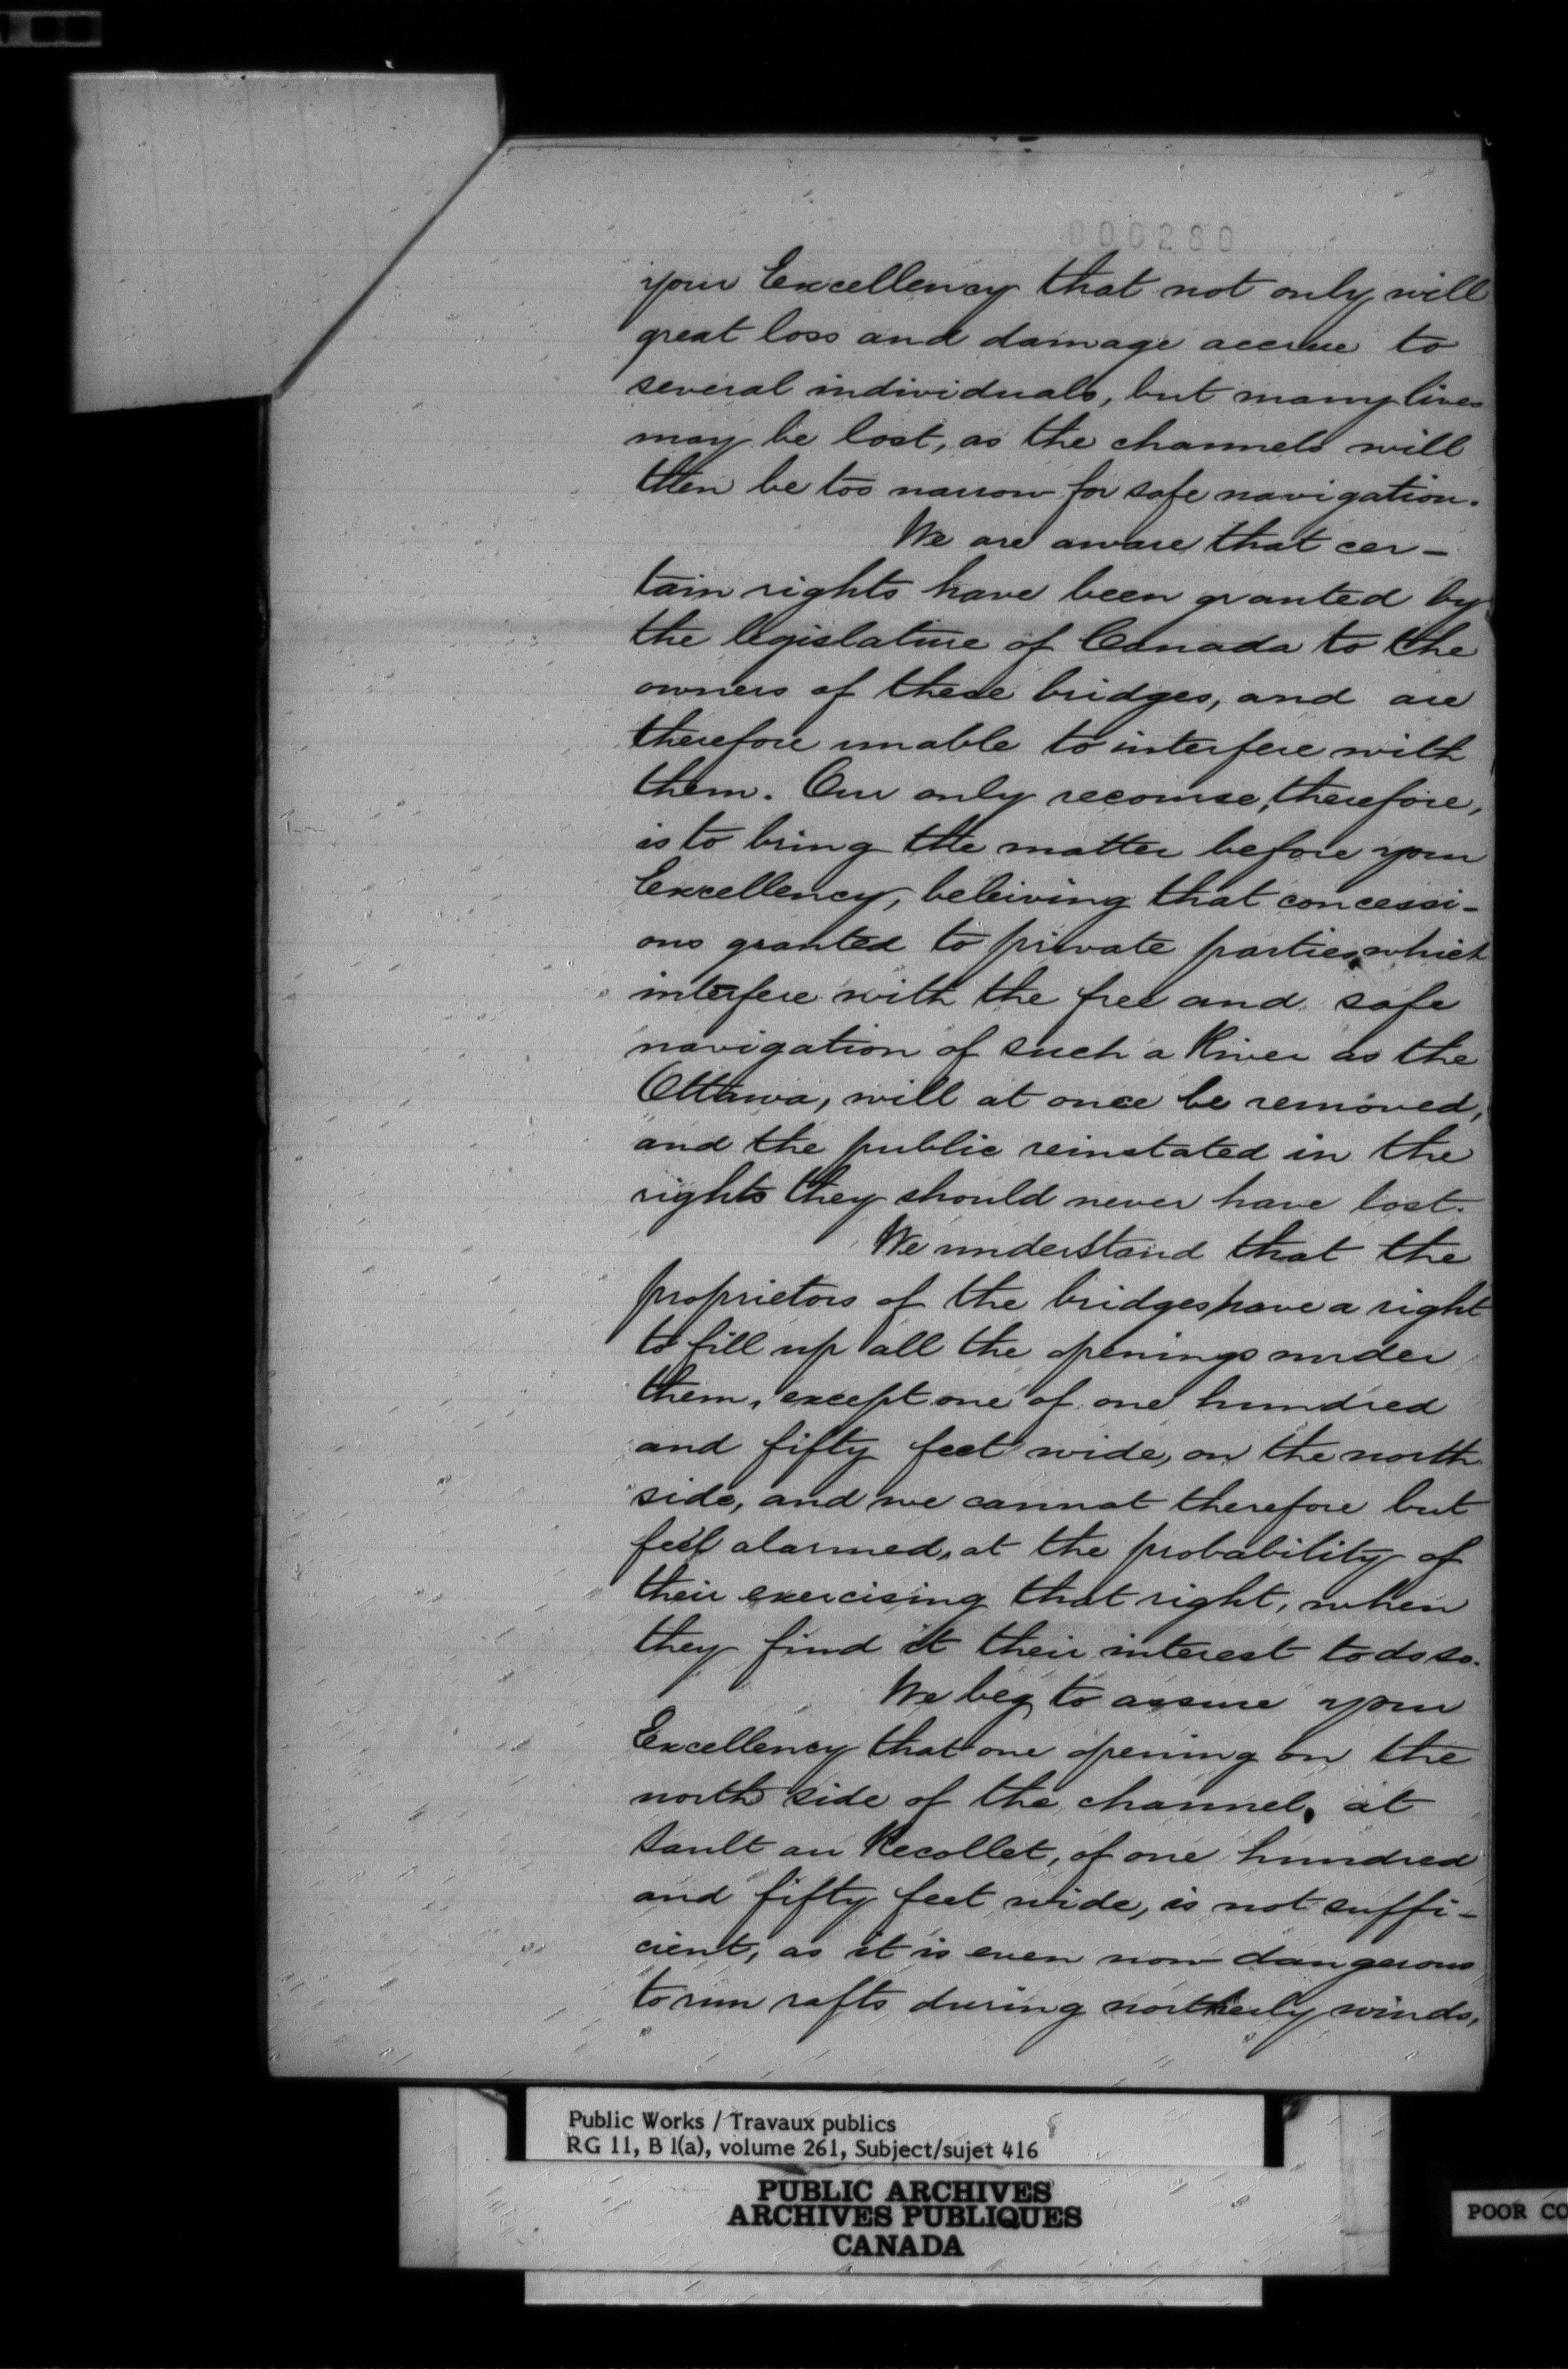 000280
your Excellency that not only will
great loss and damage accrue to
several individuals, but many lives
may be lost, as the channels will
then be too narrow for safe navigation.
We are aware that cer-
tain rights have been granted by
the legislature of Canada to the
owners of these bridges, and are
therefore unable to interfere with
them. Our only recourse, therefore,
is to bring the matter before your
Excellency, beleiving that concessi-
ons granted to private parties, which
interfere with the free and safe
navigation of such a River as the
Ottawa, will at once be removed,
and the public reinstated in the
rights they should never have lost.
We understand that the
proprietors of the bridges have a right
to fill up all the openings under
them, except one of one hundred
and fifty feet wide, on the north
side, and we cannot therefore but
feel alarmed, at the probability of
their exercising that right, when
they find it their interest to do so.
We beg to assure your
Excellency that one opening on the
north side of the channel, at
Sault au Recollet, of one hundred
and fifty feet wide, is not suffi-
cient, as it is even now dangerous
to run rafts during northerly winds,
Public Works / Travaux publics
RG 11, B 1(a), volume 261, Subject/sujet 416
PUBLIC ARCHIVES
ARCHIVES PUBLIQUES
CANADA
POOR CO